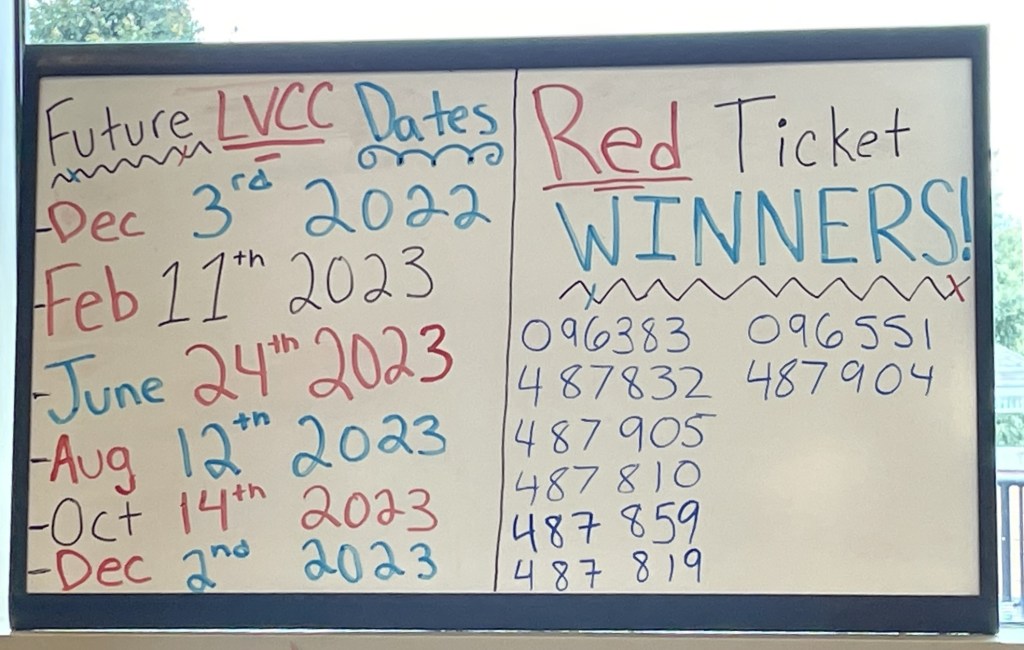 Future LVCC Dates
-Dec 3rd 2022
-Feb 11th 2023
-June 24th 2023
-Aug 12th 2023
-Oct 14th 2023
-Dec 2nd 2023
Red Ticket
WINNERS!
096383 096551
487832 487904
487905
487810
487 859
487 819